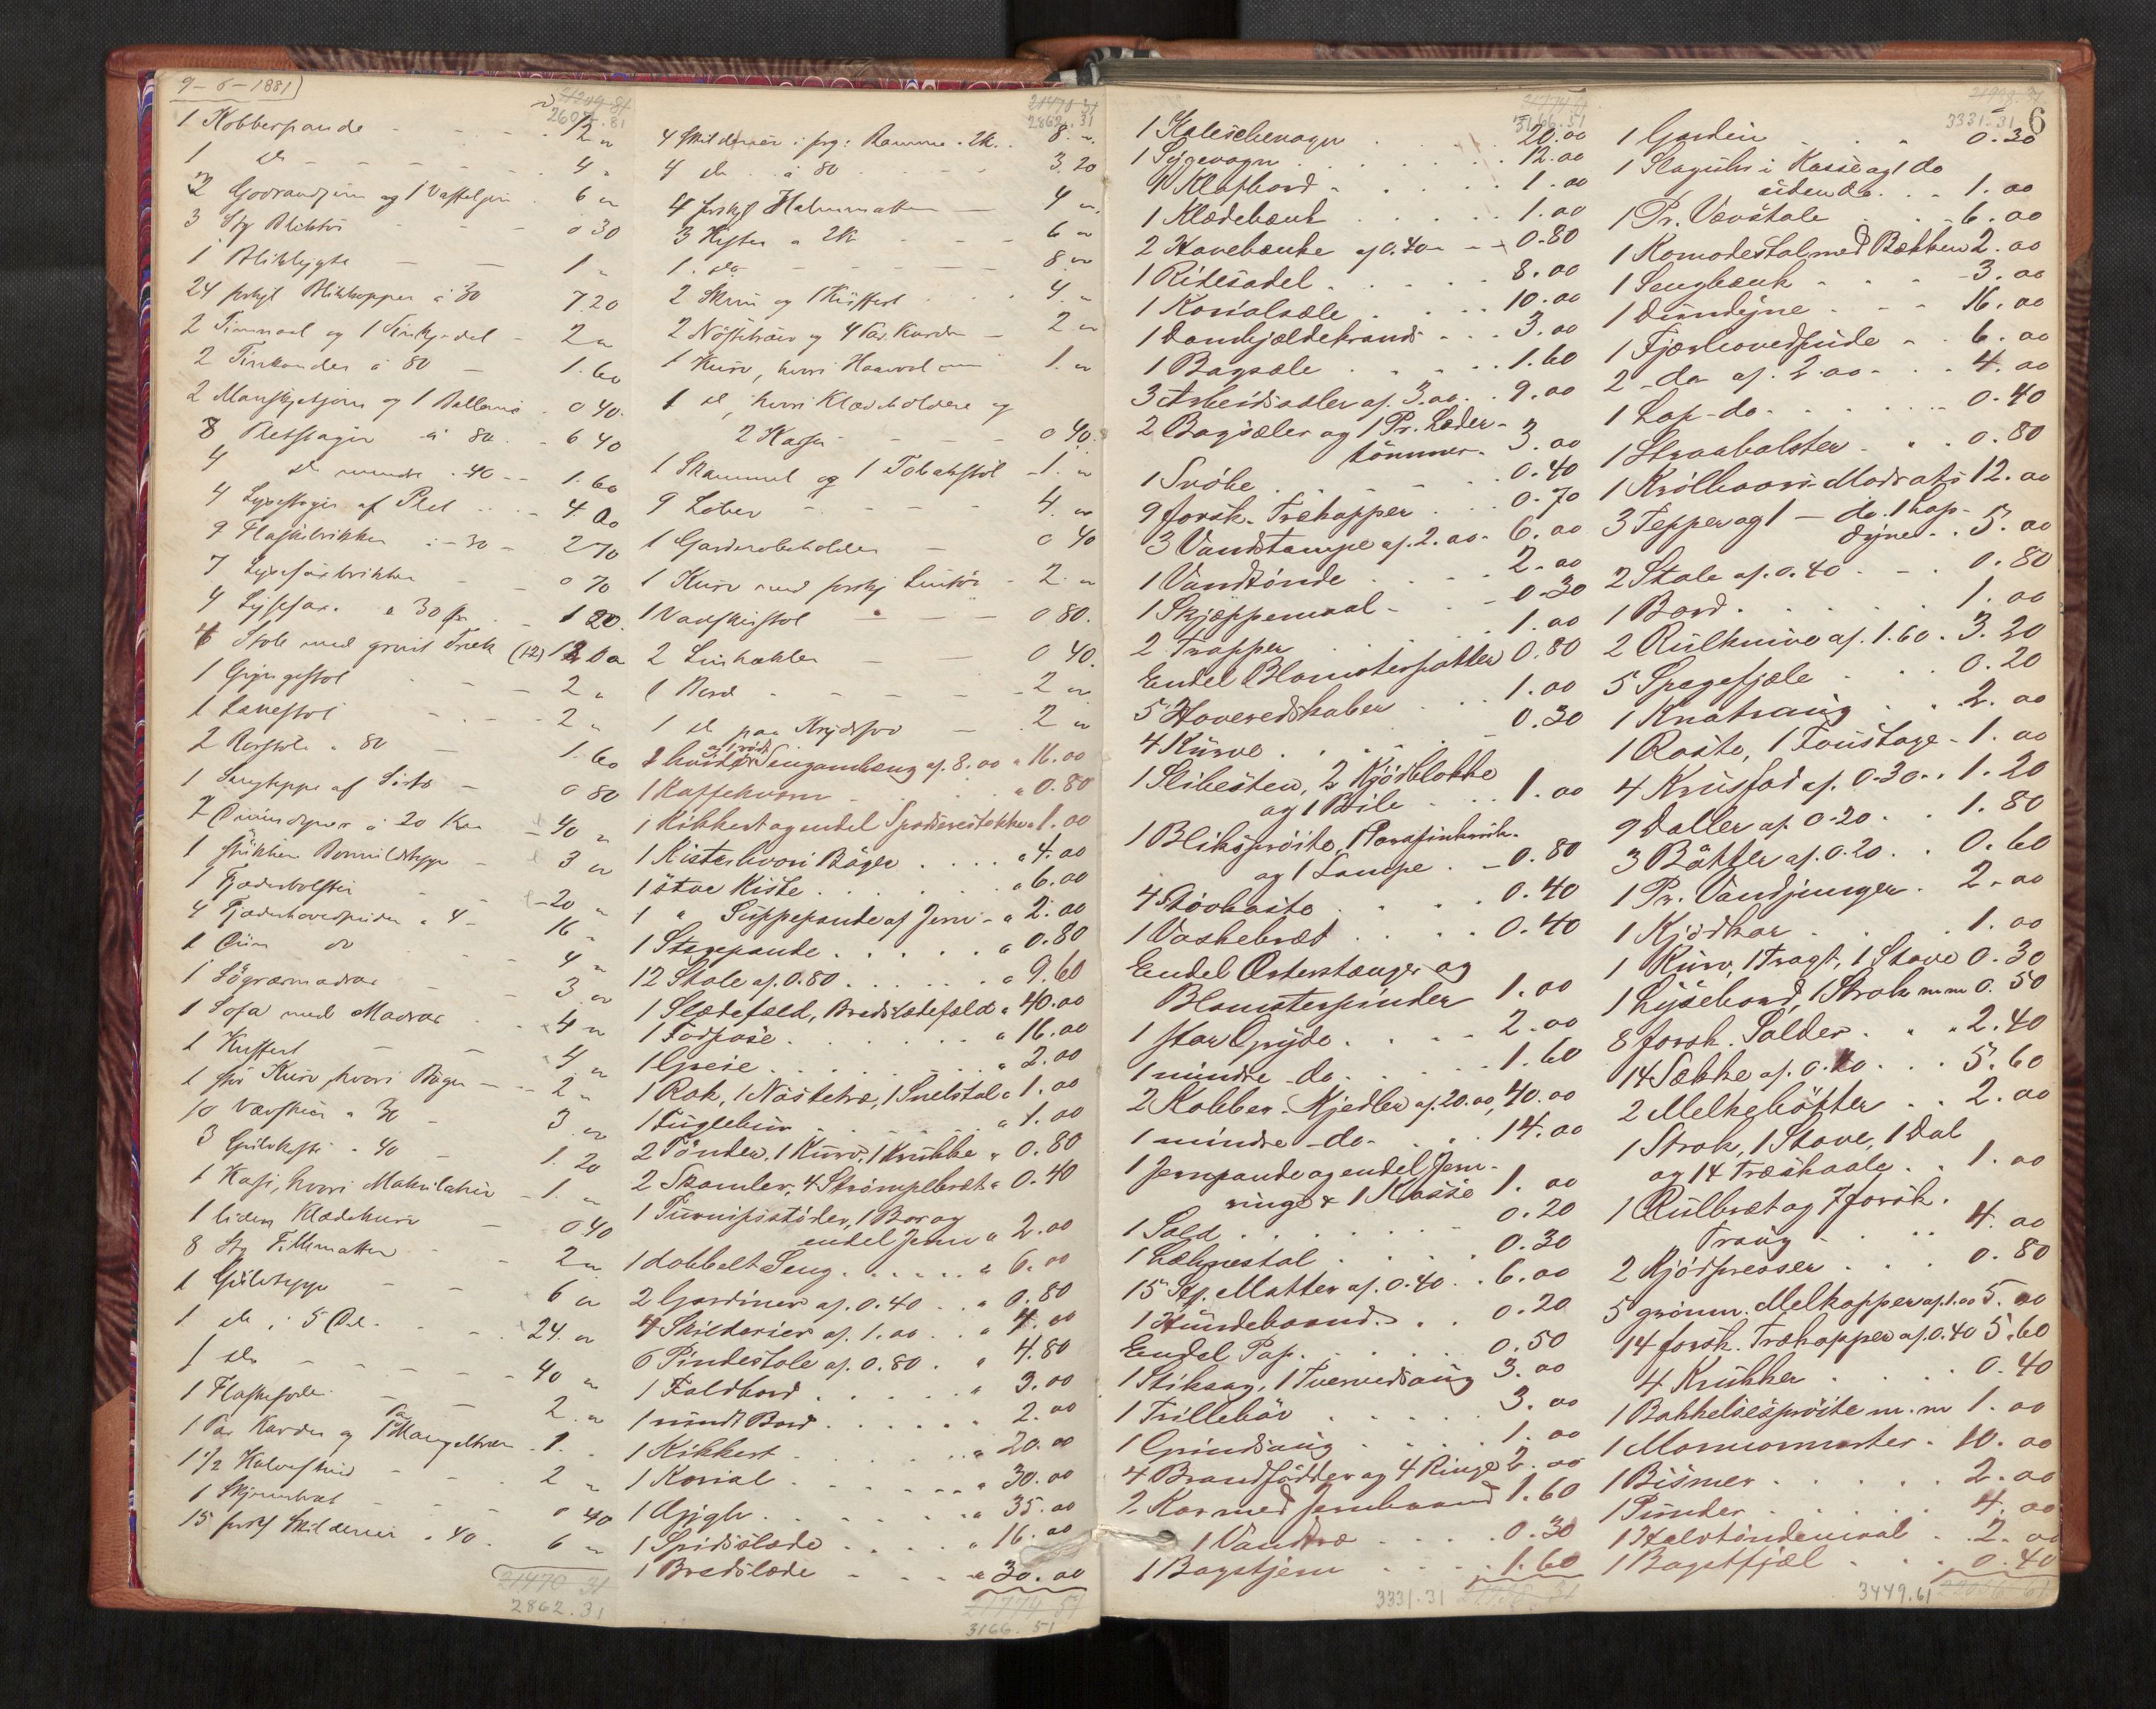 9-6-1881
21209.81
2607.81
1 Kobberpande - - - 12 "
1 do - - - - 4 "
2 Goorandjern og 1 Vaffeljern 6 "
3 Stk Bliktöi - - 0 30
1 Bliklygte - - 1 "
24 forskjl Blikkopper à 30 7.20
2 Tinmaal og 1 - 2 "
2 Tinkander à 80 - 1.60
2 og 1 0 40.
8 à 80 - 6 40
4 do mindre - 40 - - 1.60
4 Lysestager af Plet - 4.00
9 Flaskebrikker - 30 - 2 70
7 Lysesaxbrikker - 0 70
4 Lysesaxe à 30 - 1 20.
6 Stole med grønt Træk (12) 12 00
1 Gyngestol - - 2 "
1 Lænestol - - - 2 "
2 Rorstole à 80 - 1.60
1 Sengteppe af Sirts - 0 80
2 Duundyner à 20 Kr - 40 "
1 stükken Bomuldsteppe - 3 "
1 Fjæderbolster - - 20 "
4 Fjæderhovedpuder à 4 - 16 "
1 Duun do - 4 "
1 Sögræsmadras - 3 "
1 Sofa med Madras - 4 "
1 Kuffert - - 4 "
1 stor Kurv, hvori Bøger - - 2 "
10 Vævskeer à 30 - 3 "
3 à 40 - 1.20
1 Kasse, hvori Makulatur - 1. "
1 liden Klædekurv - 0 40
8 Stk Fillematter - - 2 "
1 Gulvteppe - - 6 "
1 do i 5 Del. - 24. "
1 do - - - 40 "
1 Flaskefoder - 2. "
1 Par Karder og 1 Pa Mangeltræer 1. "
1 1/2 Kalveskind - - 2 "
1 - - 0 40
15 forskj Skilderier à 40. 6 "
21470 31
2862.31
21470 31
2862.31
4 Skilderier i forg: Ramme à 2K. 8. "
4 do à 80 - 3.20
4 forskjl Halmmatter - 4 "
3 Kister à 2K - - 6 "
1. do - - - 8 "
2 Skrin og 1 Küffert . . 4. "
2 Nöstetræer og 4 Par Karder - 2 "
1 Kurv, hvori 1. "
1 do, hvori Klædeholdere og
2 Kasser - - - 0 40.
1 Skammel og 1 Tobakstöl - 1. "
9 Löber - - - 4. "
1 Garderobeholder - 0 40
1 Kurv med forskj Lintöi - 2. "
1 Vævskeistol - - 0 80.
2 Linhækler - - 0 40.
1 Bord - - - 2 "
1 do paa Krydsfod - 2 "
2 hvide og 1 rödt Sengomhæng af. 8.00 " 16.00
1 Kaffekværn . . . " 0.80
1 Kikkert og endel Spadserestokke " 1.00
1 Kiste hvori Böger . . . " 4.00
1 större Kiste . . . . " 6.00
1 " Suppepande af Jern - " 2.00
1 Stegepande . . . . " 0.80
12 Stole af. 0.80 . . . . " 9.60
1 Slædefæld, Bredslædefæld " 40.00
1 Fodpose . . . . . " 16.00
1 Greie . . . . . " 2.00
1 Rok, 1 Nöstetræ, 1 Snelstol " 1.00
1 Fuglebur . . . . " 1.00
2 Tönder, 1 Kurv, 1 Krukke " 0.80
2 Skamler, 4 Strømpebræt " 0.40
1 Turnipsstöder, 1 Bor og
endel Jern " 2.00
1 dobbelt Seng . . . . " 6.00
2 Gardiner af. 0.40 . . " 0.80
4 Skilderier af. 1.00 . . " 4.00
6 Pindestole af. 0.80 . " 4.80
1 Foldbord . . . . . " 3.00
1 rundt Bord . . . . " 2.00
1 Kikkert . . . . . " 20.00
1 Korial . . . . . " 30.00
1 Gigh . . . . . " 35.00
1 Spidsslæde . . . . " 16.00
1 Bredslæde - - - " 30.00
21774 51
3166.51
21774 51
3166.51
1 Kaleschevogn . . . 20.00
1 Sygevogn . . . . 12.00
1 Klafbord - . . . 1.00
1 Klædebænk . . . 1.00
2 Havebænke af 0.40 - - 0.80
1 Ridesadel . . . . 8.00
1 Korialsæle . . . 10.00
1 Dombjældekrands . . . 3.00
1 Bagsæle . . . . 1.60
3 Arbeidssæler af. 3.00 . . 9.00
2 Bagsæler og 1 Pr. Læder-
tömmer. 3.00
1 Svöbe . . . . . 0.40
9 forsk. Trækopper . . . 0.70
3 Vandstampe af. 2.00 - 6.00
1 Vandtönde . . . . 2.00
1 Skjæppemaal - . . 0.30
2 Trapper . . . . 1.00
Endel Blomsterpotter 0.80
5 Haveredskaber . . . 1.00
4 Kürve . . . . . 0.30
1 Slibesten, 2 Kjödblokke
og 1 Biile . . . 1.00
1 Bliksprøite, 1 Parafinkruk-
og 1 Lampe . - 0.80
4 Stövkoste . . . . 0.40
1 Vaskebræt . . . . 0.40
Endel Østerstænger og
Blomsterpinder 1.00
1 stor Gryde . . . - 2.00
1 mindre do . . . . 1.60
2 Kobber-Kjedler af. 20.00, 40.00
1 mindre do . . . 14.00
1 Jernpande og endel Jern-
ringe & 1 Kasse 1.00
1 Sold . . . . . 0.20
1 Lehnestol . . . . 0.30
15 Stk. Matter af. 0.40 . . 6.00
1 Hundebaand . . . 0.20
Endel Pap . . . . 0.50
1 Stiksag, 1 Tværvedsaug 3.00
1 Trillebör . . . . . 3.00
1 Grindsaug . . . . 1.00
4 Brandfödder og 4 Ringe 2.00
2 Kar med Jernbaand 1.60
1 Vandtræ . . . . 0.30
1 Bagstjern . . . . 1.60
3331.31
3331.31
6
1 Gardin . . . 0.30
1 Slaguhr i Kasse og 1 do
uden do. . . 1.00
1 Pr. Vævstole . . . 6.00
1 Komodestol med Bækken 2.00
1 Sengbænk . . . . 3.00
1 Dundyne . . - - 16.00
1 Fjærhovedpude . . 6.00
2 - do af. 2.00 . . . 4.00
1 Lap - do . . . . 0.40
1 Straabolster . . . 0.80
1 Krölhaars-Madrats 12.00
3 Tepper og 1 - do. 1 Lap-
dyne . . 5.00
2 Stole af. 0.40 . - . 0.80
1 Bord . . . . . . 1.00
2 Rulknive af. 1.60 . 3.20
5 Spegefjæle . . . 0.20
1 Knatraug . . . 2.00
1 Roste, 1 Foustage - 1.00
4 Krusfad af. 0.30 . . 1.20
9 Daller af. 0.20 . . 1.80
3 Bötter af. 0.20 . . 0.60
1 Pr. Vandjunger . 2.00
1 Kjødkar . . . . 1.00
1 Kurv, 1 Tragt, 1 Stave 0.30
1 Lysebord, 1 Strok m m 0.50
8 forsk. Solder . . . 2.40
14 Sække af. 0.40 . . . 5.60
2 Melkebötter . . 2.00
1 Strok, 1 Stave, 1 Dal
og 14 Træskaale . . 1.00
1 Rulbræt og 7 forsk.
Traug . . . . 4.00
2 Kjödpresser . . . 0.80
5 grönm. Melkopper af. 1.00 5.00
14 forsk. Trækopper af. 0.40 5.60
4 Krukker . . . . 0.40
1 Bakkelsesprøite m. m 1.00
1 Mormormorter . 10.00
1 Bismer . . . . . 2.00
1 Punder . . . . . 4.00
1 Halvtöndemaal . . 2.00
1 Bagstfjæl . . . . 0.40
3449.61